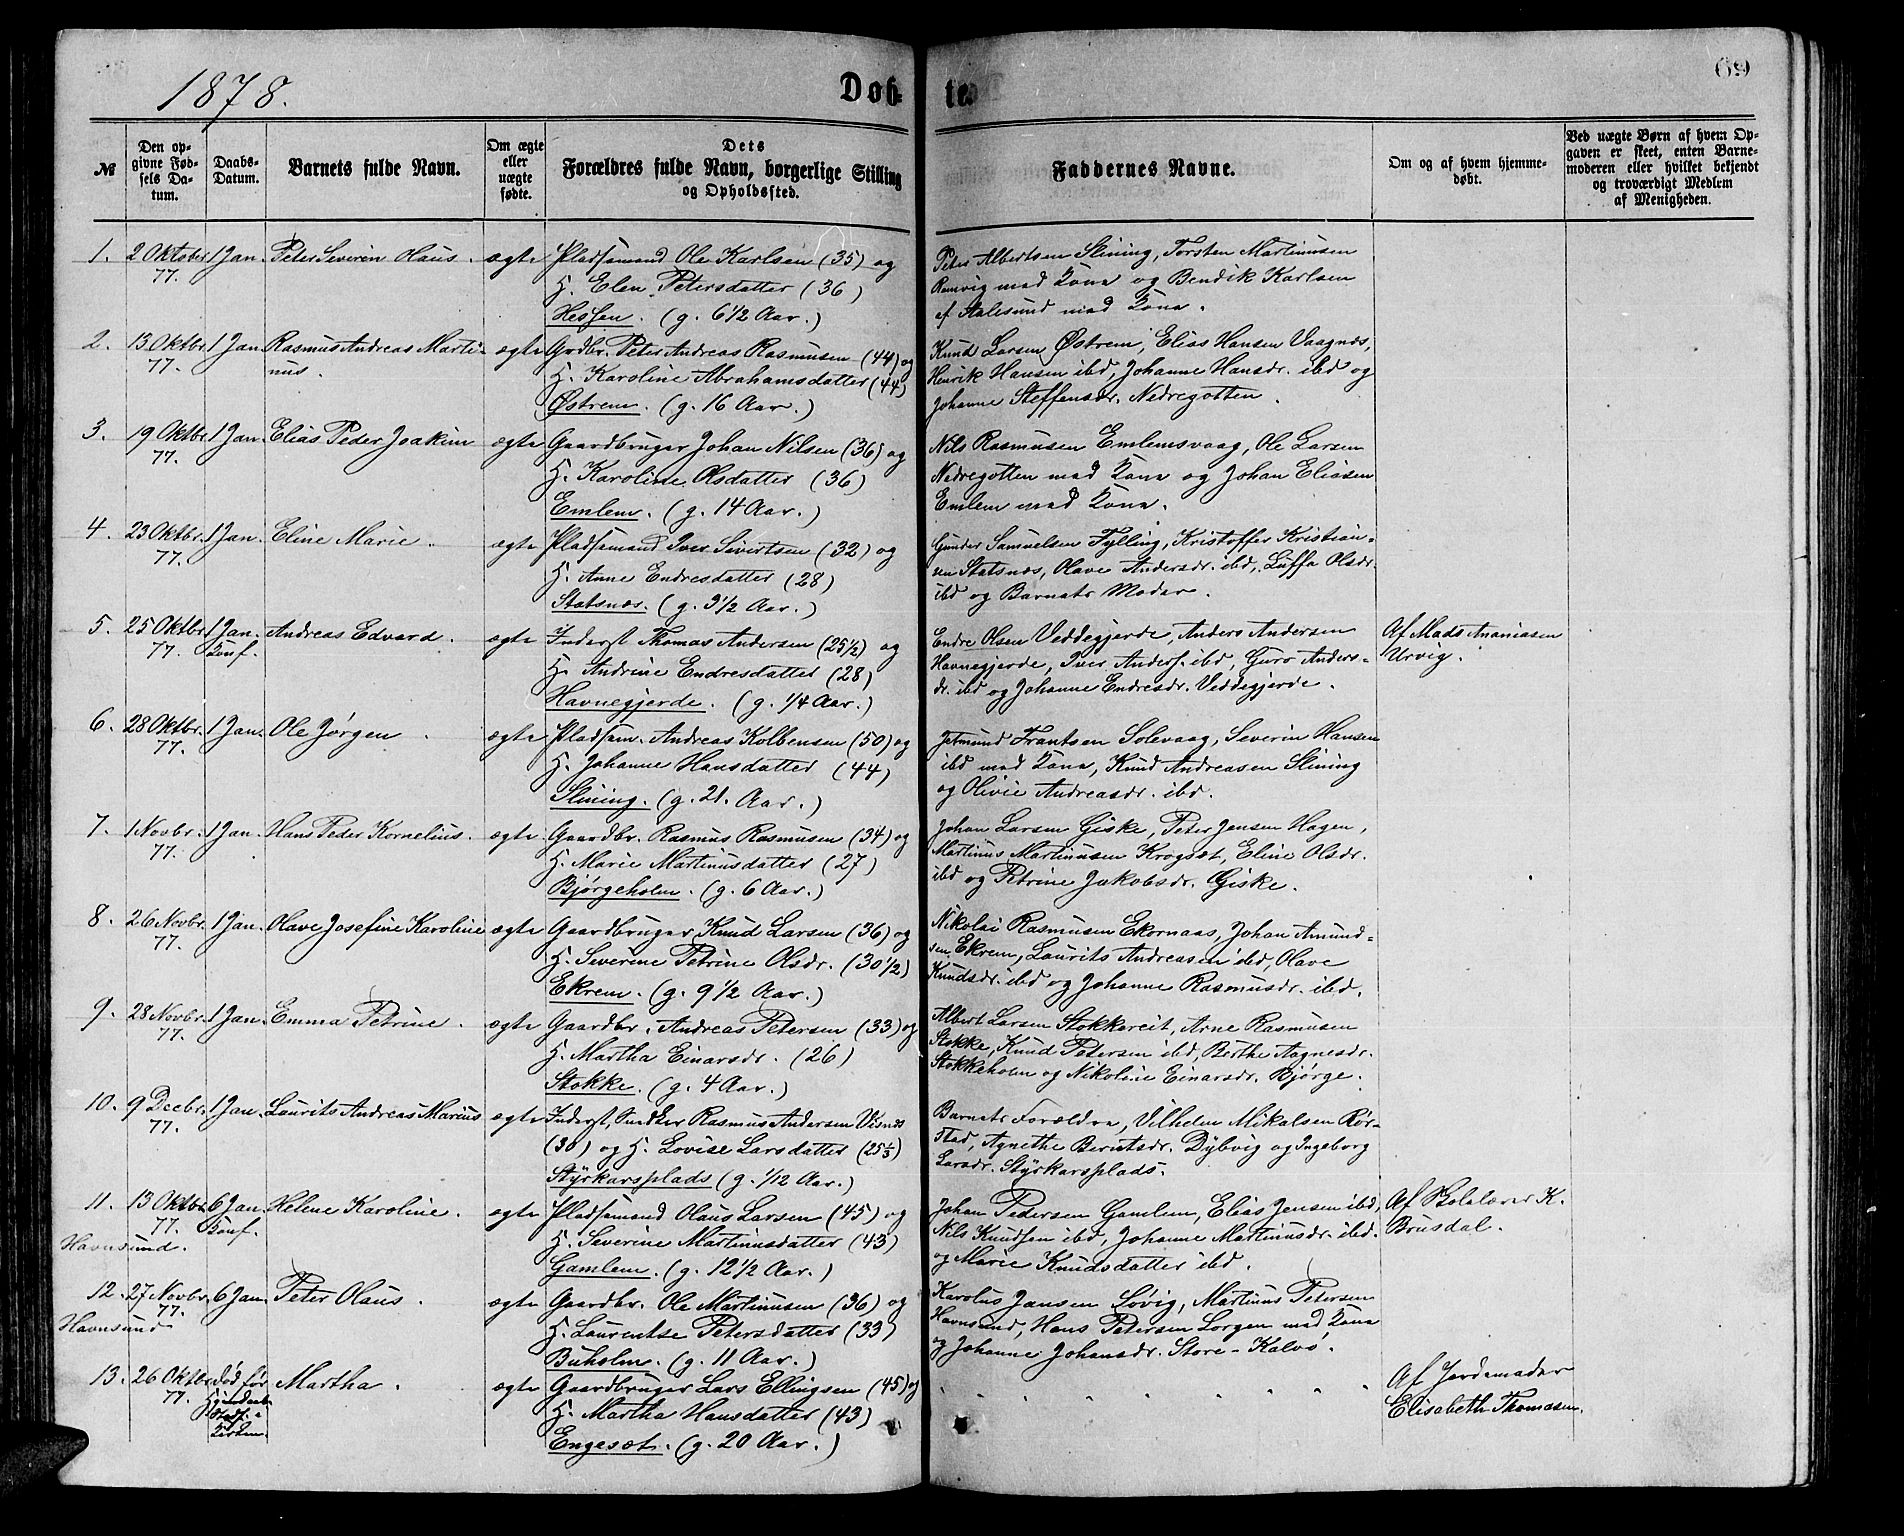 1878.
Døb-
te.
69
№
Den op-
givne Fød-
sels Da-
tum.
Daabs-
Datum.
Barnets fulde Navn.
Om ægte
eller
uægte
fødte.
Dets
Forældres fulde Navn, borgerlige Stilling
og Opholdssted.
Faddernes Navne.
Om og af hvem hjemme-
døbt.
Ved uægte Børn af hvem Op-
gaven er skeet, enten Barne-
moderen eller hvilket bekjendt
og troværdigt Medlem
af Menigheden.
1. 2 Oktober 1 Jan. Peter Severin Olaus. ægte Pladsemand Ole Karlsen (35) og
77. H. Elen Petersdatter (36)
Hessen. (g. 6 1/2 Aar.)
Peter Albertsen Slining, Torsten Martinusen
Ramvig med Kone og Bendik Karlsen
af Aalesund med Kone.
2. 13 Oktbr. 1 Jan. Rasmus Andreas Marti- ægte Grdbr. Peter Andreas Rasmusen (44) og
77. nus. H. Karoline Abrahamsdatter (44)
Østrem. (g. 16 Aar.)
Knud Larsen Østrem, Elias Hansen Vaagnæs,
Henrik Hansen ibd, Johanne Hansdr. ibd og
Johanne Steffensdr. Nedregotten.
3. 19 Oktbr. 1 Jan. Elias Peder Joakim ægte Gaardbruger Johan Nilsen (36) og
77. H. Karoline Olsdatter (36)
Emlem. (g. 14 Aar.)
Nils Rasmusen Emlemsvaag, Ole Larsen
Nedregotten med Kone og Johan Eliasen
Emlem med Kone.
4. 23 Oktbr. 1 Jan. Eline Marie. ægte Pladsemand Iver Sivertsen (32) og
77. H. Anne Endresdatter (28)
Statsnæs. (g. 3 1/2 Aar.)
Gunder Samuelsen Fylling, Kristoffer Kristian-
sen Statsnæs, Olave Andersdr. ibd, Luffa Olsdr.
ibd og Barnets Moder.
5. 25 Oktbr. 1 Jan. Andreas Edvard. ægte Inderst Thomas Andersen (25 1/2) og
77. Konf. H. Andrine Endresdatter (28)
Havnegjerde. (g. 1/4 Aar.)
Endre Olsen Veddegjerde, Anders Andersen
Havnegjerde, Iver Anders. ibd, Guro Anders-
dr. ibd og Johanne Endresdr. Veddegjerde.
Af Mads Ananiasen
Urvig.
6. 28 Oktbr. 1 Jan. Ole Jørgen. ægte Pladsem. Andreas Kolbensen (50) og
77. H. Johanne Hansdatter (44)
Slining. (g. 21. Aar.)
Jetmund Frantsen Solevaag, Severin Hansen
ibd med Kone, Knud Andreasen Slining
og Olivie Andreasdr. ibd.
7. 1 Novbr. 1 Jan. Hans Peder Kornelius. ægte Gaardbr. Rasmus Rasmusen (34) og
77. H. Marie Martinusdatter (27)
Bjørgeholm. (g. 6 Aar.)
Johan Larsen Giske, Peter Jensen Hagen,
Martinus Martinusen Krogsæt, Eline Olsdr.
ibd og Petrine Jakobsdr. Giske.
8. 26 Novbr. 1 Jan. Olave Josefine Karoline ægte Gaardbruger Knud Larsen (36) og
77. H. Severine Petrine Olsdr. (30 1/2)
Ekrem. (g. 9 1/2 Aar.)
Nikolai Rasmusen Ekornaas, Johan Amund-
sen Ekrem, Laurits Andreasen ibd, Olave
Knudsdr. ibd og Johanne Rasmusdr. ibd.
9. 28 Novbr. 1 Jan. Emma Petrine. ægte Gaardbr. Andreas Petersen (33) og
77. H. Martha Einarsdr. (26)
Stokke. (g. 4 Aar.)
Albert Larsen Stokkereit, Arne Rasmusen
Stokke, Knud Petersen ibd, Berthe Aagnesdr.
Stokkeholm og Nikoline Einarsdr. Bjørge.
10. 9 Decbr. 1 Jan. Laurits Andreas Marius ægte Inderst, Snedker Rasmus Andersen Visnæs
77. (30) og H. Lovise Larsdatter (25 1/3)
Styrkarsplads (g. 1/12 Aar.)
Barnets Forældre, Vilhelm Mikalsen Rør-
stad, Agnethe Berntsdr. Dybvig og Ingeborg
Larsdr. Styrkarsplads.
11. 13 Oktbr. 6 Jan. Helene Karoline. ægte Pladsemand Olaus Larsen (45) og
77. Konf. H. Severine Martinusdatter (43)
Havnsund. Gamlem. (g. 12 1/2 Aar.)
Johan Pedersen Gamlem, Elias Jensen ibd,
Nils Knudsen ibd, Johanne Martinusdr. ibd.
og Marie Knudsdatter ibd.
Af Skolelærer K.
Brusdal.
12. 27 Novbr. 6 Jan. Peter Olaus. ægte Gaardbr. Ole Martinusen (36) og
77. H. Laurentse Petersdatter (33)
Havnsund Buholm. (g. 11 Aar.)
Karolus Jansen Løvig, Martinus Petersen
Havnsund, Hans Petersen Longen med Kone
og Johanne Johansdr. Store-Kalvø.
13. 26 Oktbr. død før Martha. ægte Gaardbruger Lars Ellingsen (45) og
77. H. Martha Hansdatter (43)
Kirken. Engesæt. (g. 20 Aar.)
Af Jordemoder
Elisabeth Thomasen.